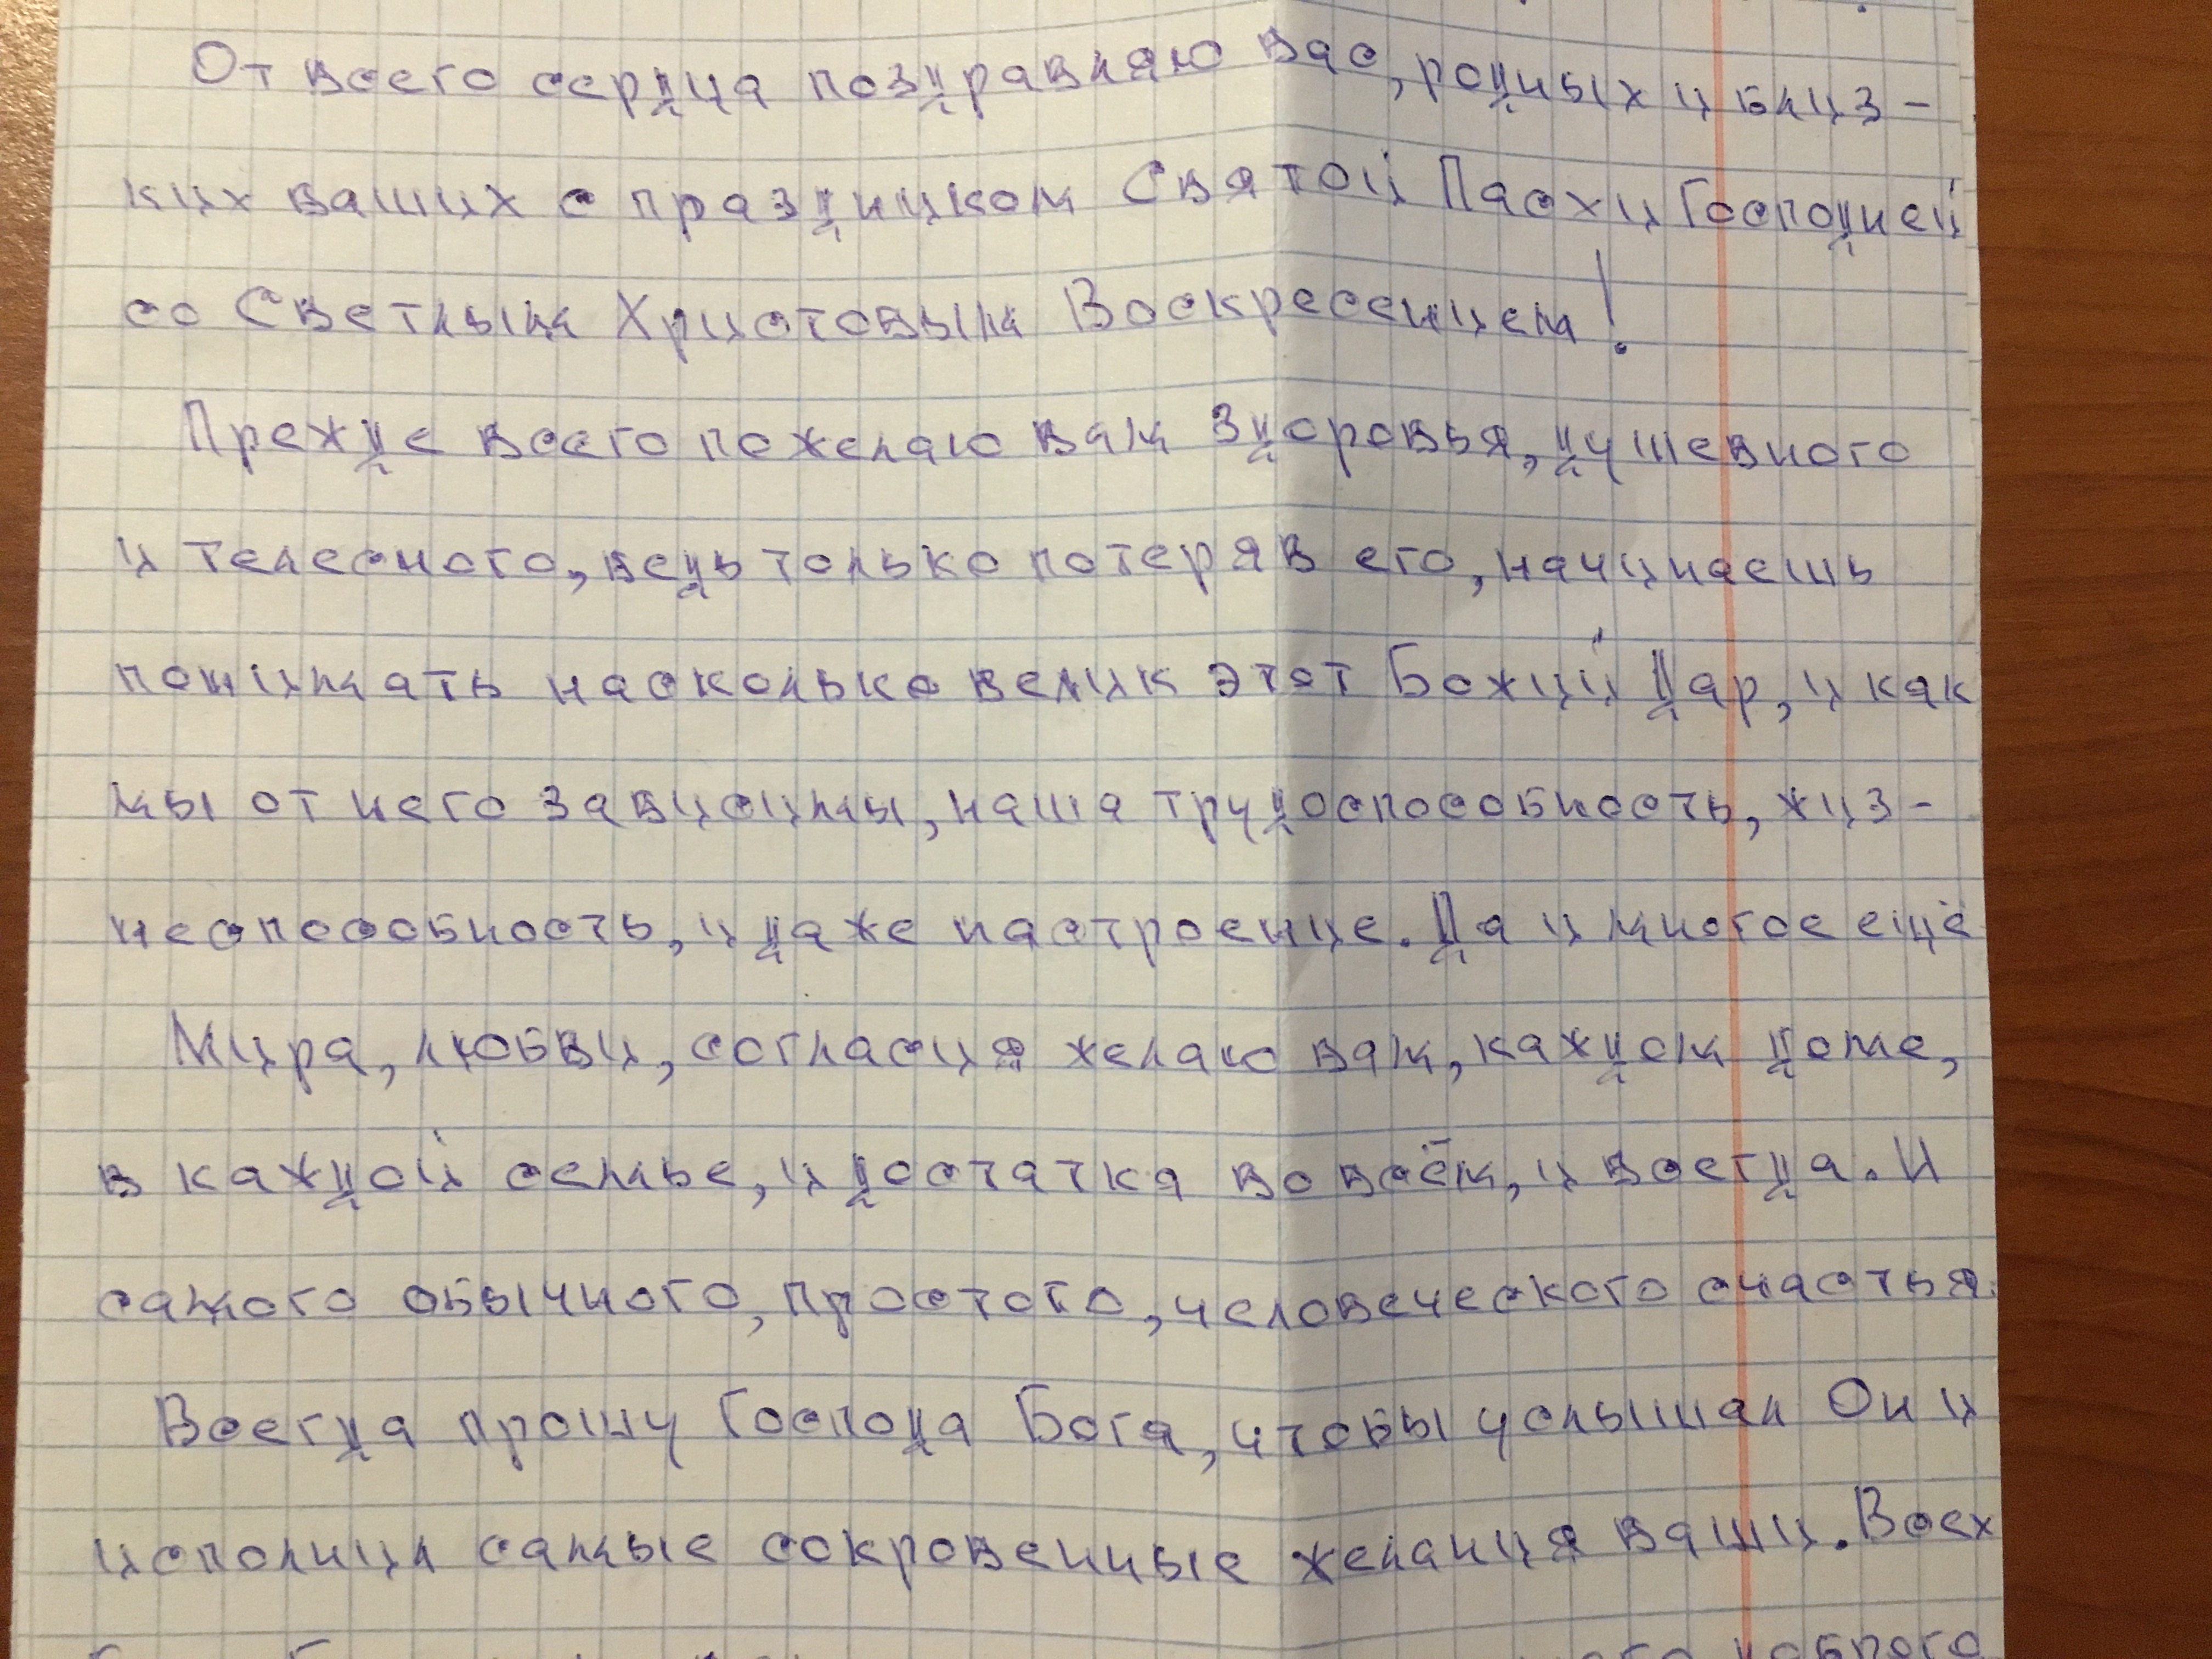 От всего сердца поздравляю Вас, родных и близ-
ких ваших с праздником Святой Пасхи Господней
со Светлым Христовым Воскресением!
Прежде всего пожелаю вам здоровья, душевного
и телесного, ведь только потеряв его, начинаешь
понимать насколько велик этот Божий Дар, и как
мы от него зависимы, наша трудоспособность, жиз-
неспособность, и даже настроение. Да и многое ещё
Мира, любви, согласия желаю вам, каждом доме,
в каждой семье, и достатка во всём, и всегда. И
самого обычного, простого, человеческого счастья.
Всегда прошу Господа Бога, чтобы услышал Он и
исполнил самые сокровенные желания ваши. Всех
доброго